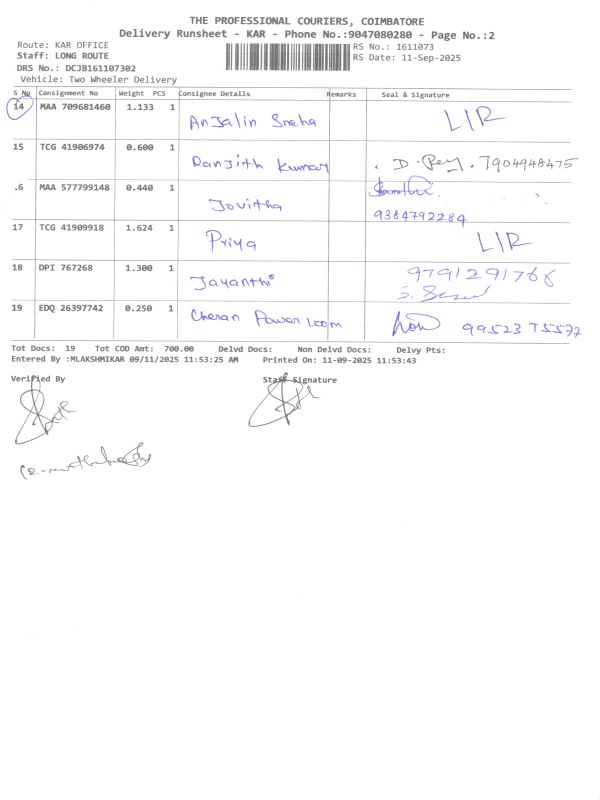 THE PROFESSIONAL COURIERS, COIMBATORE
Delivery Runsheet - KAR - Phone No.:9047080280 - Page No.:2
Route: KAR OFFICE
RS No.: 1611073
Staff: LONG ROUTE
RS Date: 11-Sep-2025
DRS No.: DCJB161107302
Vehicle: Two Wheeler Delivery
S No Consignment No Weight PCS Consignee Details Remarks Seal & Signature
14 MAA 709681460 1.133 1 Anjalin Sneha L/R
15 TCG 41906974 0.600 1 Ranjith Kumar D. 7904948475
.6 MAA 577799148 0.440 1 Jovitha 9384792284
17 TCG 41909918 1.624 1 Priya L/R
18 DPI 767268 1.300 1 Jayanthi 9791291766
19 EDQ 26397742 0.250 1 Cheran Powerloom 9952375572
Tot Docs: 19 Tot COD Amt: 700.00 Delvd Docs: Non Delvd Docs: Delvy Pts:
Entered By :MLAKSHMIKAR 09/11/2025 11:53:25 AM Printed On: 11-09-2025 11:53:43
Verified By Staff Signature